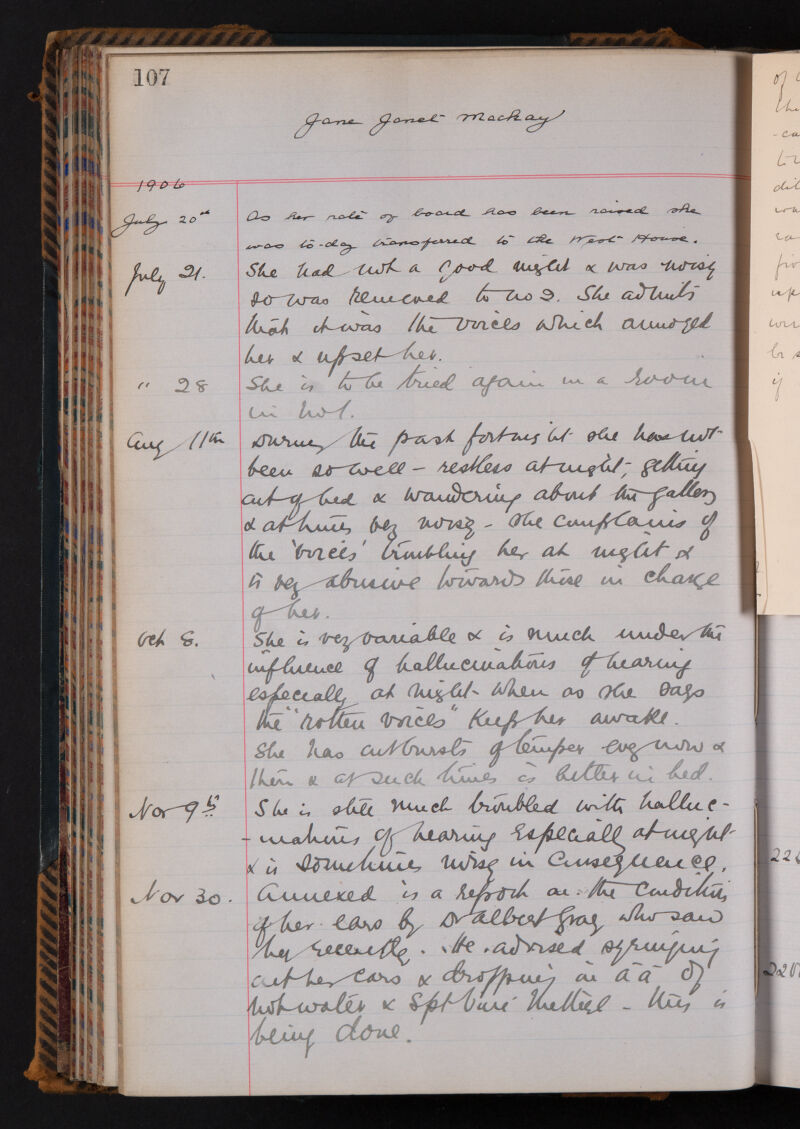 107
Jane Janet Mackay
1906
July 20th As her rate of board has been raised she
was to-day transferred to the West House.
July 21. She had not a good night & was noisy
so was removed to no 2. She admits
that it was the voices which annoyed
her & upset her.
" 28 She is to be tried again in a room
in no 1.
Aug 11th During the past fortnight she has not
been so well - restless at night, getting
out of bed & wandering about the gallery
& at times very noisy - She complains of
the 'voices' troubling her at night &
is very abusive towards those in charge
of her.
Oct 8. She is very variable & is much under the
influence of hallucinations of hearing
especially at night - when as she says
the "rotten voices" keep her awake.
She has outbursts of temper every now &
then & at such times is better in bed.
Nov 9th She is still much troubled with halluc-
-inations of hearing especially at night
& is sometimes noisy in consequence.
Nov 30. Annexed is a report on the condition
of her ears by Dr Albert Gray who saw
her recently. He advised syringing
out her ears & dropping in āā of
hot water & Spt Vini Methyl - this is
being done.